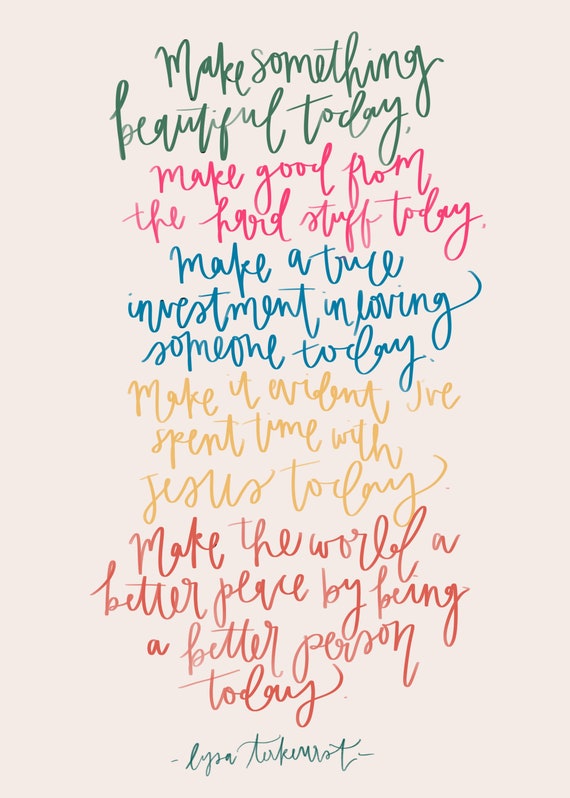 Make something
beautiful today,
make good from
the hard stuff today,
make a true
investment in loving
someone today.
Make it evident I've
spent time with
Jesus today.
Make the world a
better peace by being
a better person
today.
- lysa terkeurst -